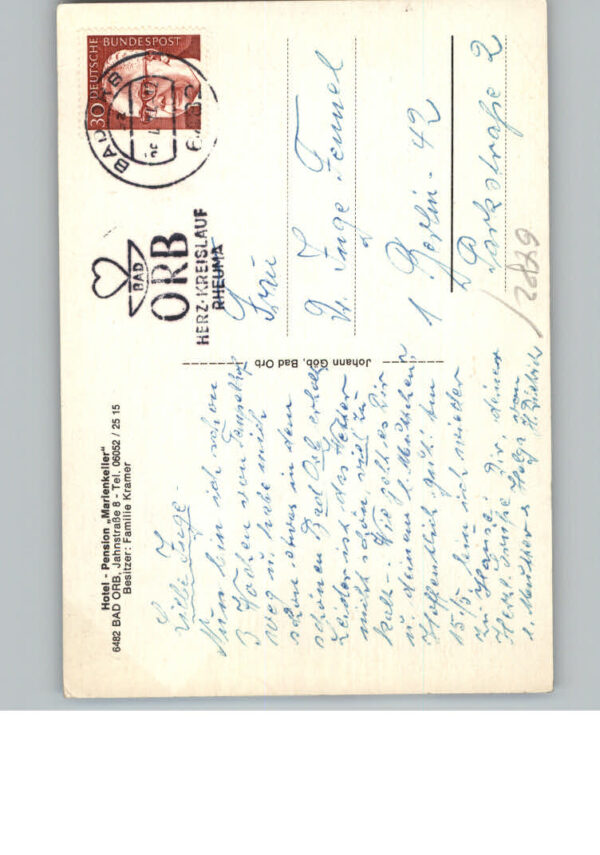 Hotel - Pension „Marienkeller"
6482 BAD ORB, Jahnstraße 8 - Tel. 06052 / 25 15
Besitzer: Familie Kramer
Liebe Inge.
Nun bin ich schon
3 Wochen von
weg u. habe mich
schon etwas in dem
schönen Bad Orb erholt
Leider ist das Wetter
nicht schön, viel zu
kalt. Wie geht es Dir
u. deinem l. Muttchen,
Hoffentlich gut! Am
15/5 bin ich wieder
zu Hause.
Herzl. Grüße Dir, deiner
l. Mutter u. Holge von
H. Dietrich
Johann Göb, Bad Orb
30 DEUTSCHE BUNDESPOST
BAD ORB
BAD
ORB
HERZ·KREISLAUF
RHEUMA
Frau
Inge Fennel
1 Berlin - 42
Parkstraße 2